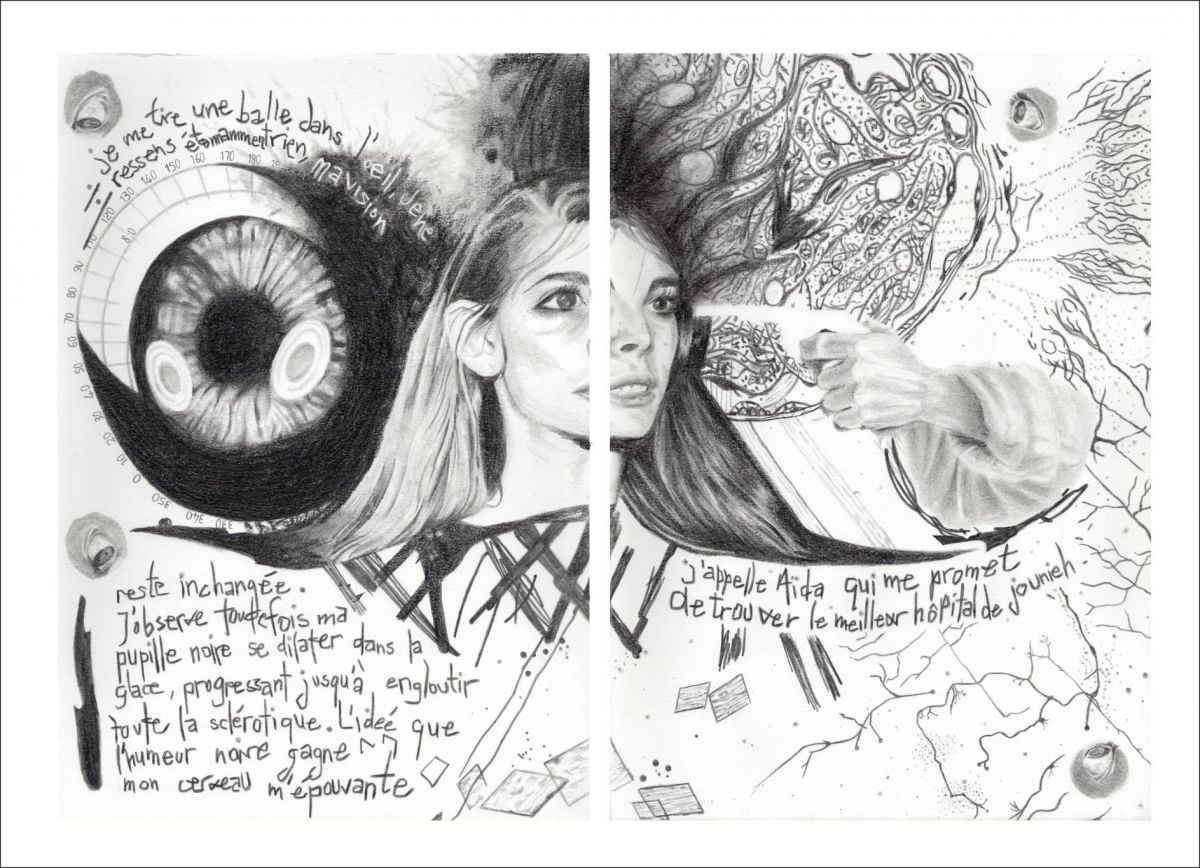 je me tire une balle dans l'œil. Je ne
ressens étonnamment rien, ma vision
180
170
160
150
140
130
120
110
90
80
70
60
50
40
30
20
10
0
350
340
330
8.0
reste inchangée.
J'observe toutefois ma
pupille noire se dilater dans la
glace, progressant jusqu'à engloutir
toute la sclérotique. L'ideé que
l'humeur noire gagne
mon cerveau m'épouvante
j'appelle Aïda qui me promet
de trouver le meilleur hôpital de jounieh.